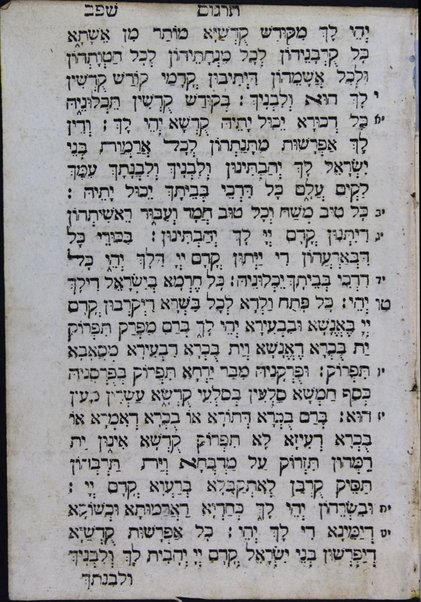 תרגום שפב
יְהֵי לָךְ מִקּוּדַשׁ קֻדְשַׁיָּא מוֹתַר מִן אֶשָּׁתָא
כָּל קֻרְבָּנֵיהוֹן לְכָל מִנְחָתְהוֹן וּלְכָל חַטָּוָתְהוֹן
וּלְכָל אֲשָׁמְהוֹן דִּיתִיבוּן קֳדָמַי קוֹדֶשׁ קֻדְשִׁין
י לָךְ הוּא וְלִבְנָיךְ : בְּקוֹדֶשׁ קֻדְשִׁין תֵּיכְלִנֵּיהּ
יא כָּל דְּכוּרָא יֵכוּל יָתֵיהּ קֻדְשָׁא יְהֵי לָךְ : וְדֵין
לָךְ אַפְרָשׁוּת מַתְּנָתְהוֹן לְכָל אֲרָמוּת בְּנֵי
יִשְׂרָאֵל לָךְ יְהַבְתִּינוּן וְלִבְנָיךְ וְלִבְנָתָךְ עִמָּךְ
לִקְיָם עֲלָם כָּל דִּדְכֵי בְּבֵיתָךְ יֵכוּל יָתֵיהּ :
יב כָּל טוּב מְשַׁח וְכָל טוּב חֲמַר וְעִבּוּר רֵאשִׁיתְהוֹן
יג דְּיִתְּנוּן קֳדָם יְיָ לָךְ יְהַבְתִּינוּן : בִּכּוּרֵי כָּל
דִּבְאַרְעֲהוֹן דִּי יַיְתוּן קֳדָם יְיָ דִּלָךְ יְהֵי כָּל
יד דִּדְכֵי בְּבֵיתָךְ יֵכְלוּנֵּיהּ : כָּל חֶרְמָא בְיִשְׂרָאֵל דִּילָךְ
טו יְהֵי : כָּל פָּתַח וַלְדָּא לְכָל בִּשְׂרָא דִּיקָרְבוּן קֳדָם
יְיָ בֶּאֱנָשָׁא וּבִבְעִירָא יְהֵי לָךְ בְּרַם מִפְרַק תִּפְרוֹק
יַת בּוּכְרָא דֶאֱנָשָׁא וְיַת בּוּכְרָא דִּבְעִירָא מְסָאֲבָא
יו תִּפְרוֹק : וּפֻרְקָנֵיהּ מִבַּר יַרְחָא תִּפְרוֹק בְּפֻרְסָנֵיהּ
כְּסַף חַמְשָׁא סִלְעִין בְּסִלְעֵי קֻדְשָׁא עֶשְׂרִין מָעִין
יז הוּא : בְּרַם בּוּכְרָא דְתוֹרָא אוֹ בּוּכְרָא דְאִמְּרָא אוֹ
בּוּכְרָא דְעִזָּא לָא תִפְרוֹק קֻדְשָׁא אִינוּן יַת
דִּמְהוֹן תִּזְרוֹק עַל מַדְבְּחָא וְיַת תַּרְבְּהוֹן
תַּסֵּיק קֻרְבַּן לְאִתְקַבָּלָא בְּרַעֲוָא קֳדָם יְיָ :
יח וּבִשְׂרְהוֹן יְהֵי לָךְ כְּחֶדְיָא דַאֲרָמוּתָא וּכְשׁוֹקָא
יט דְיַמִּינָא דִּי לָךְ יְהֵי : כָּל אַפְרָשׁוּת קֻדְשַׁיָּא
דְּיַפְרְשׁוּן בְּנֵי יִשְׂרָאֵל קֳדָם יְיָ יְהָבִית לָךְ וְלִבְנָיךְ
וְלִבְנָתָךְ